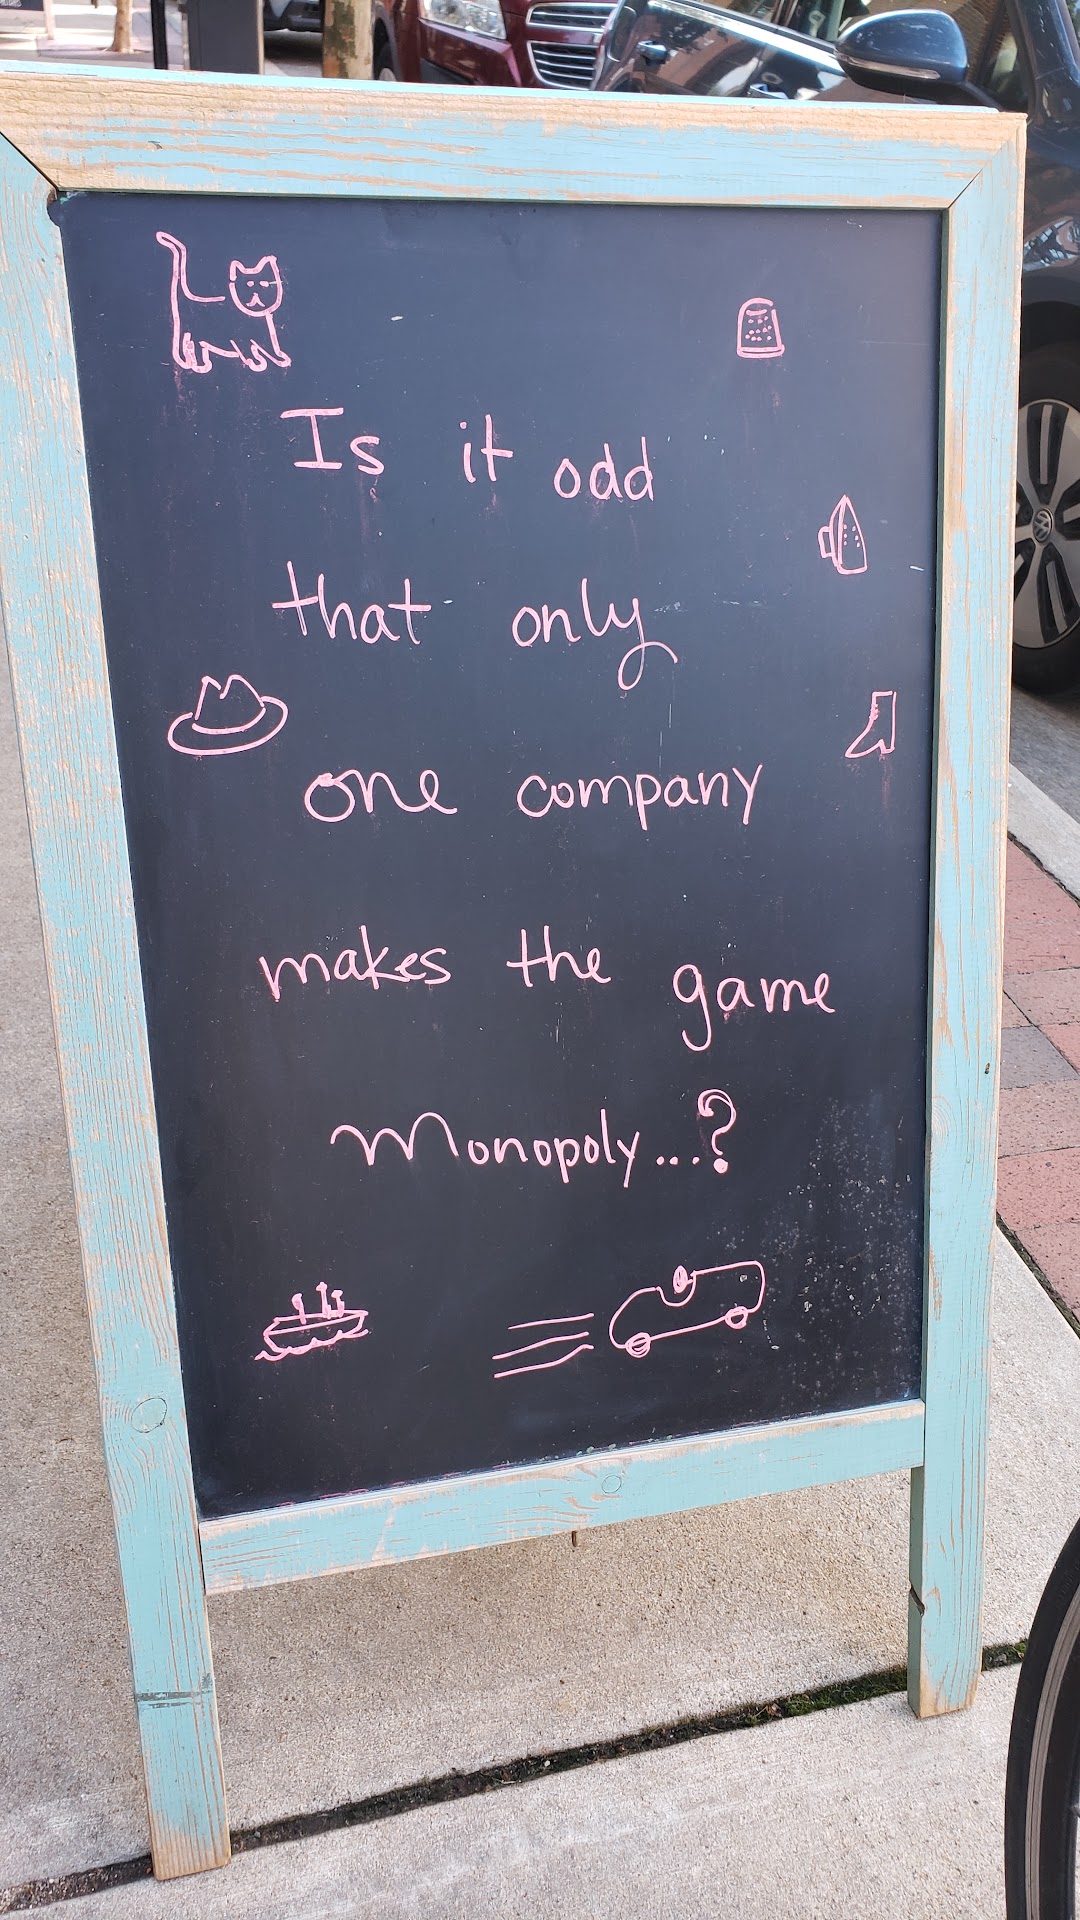 Is it odd
that only
one company
makes the game
Monopoly...?